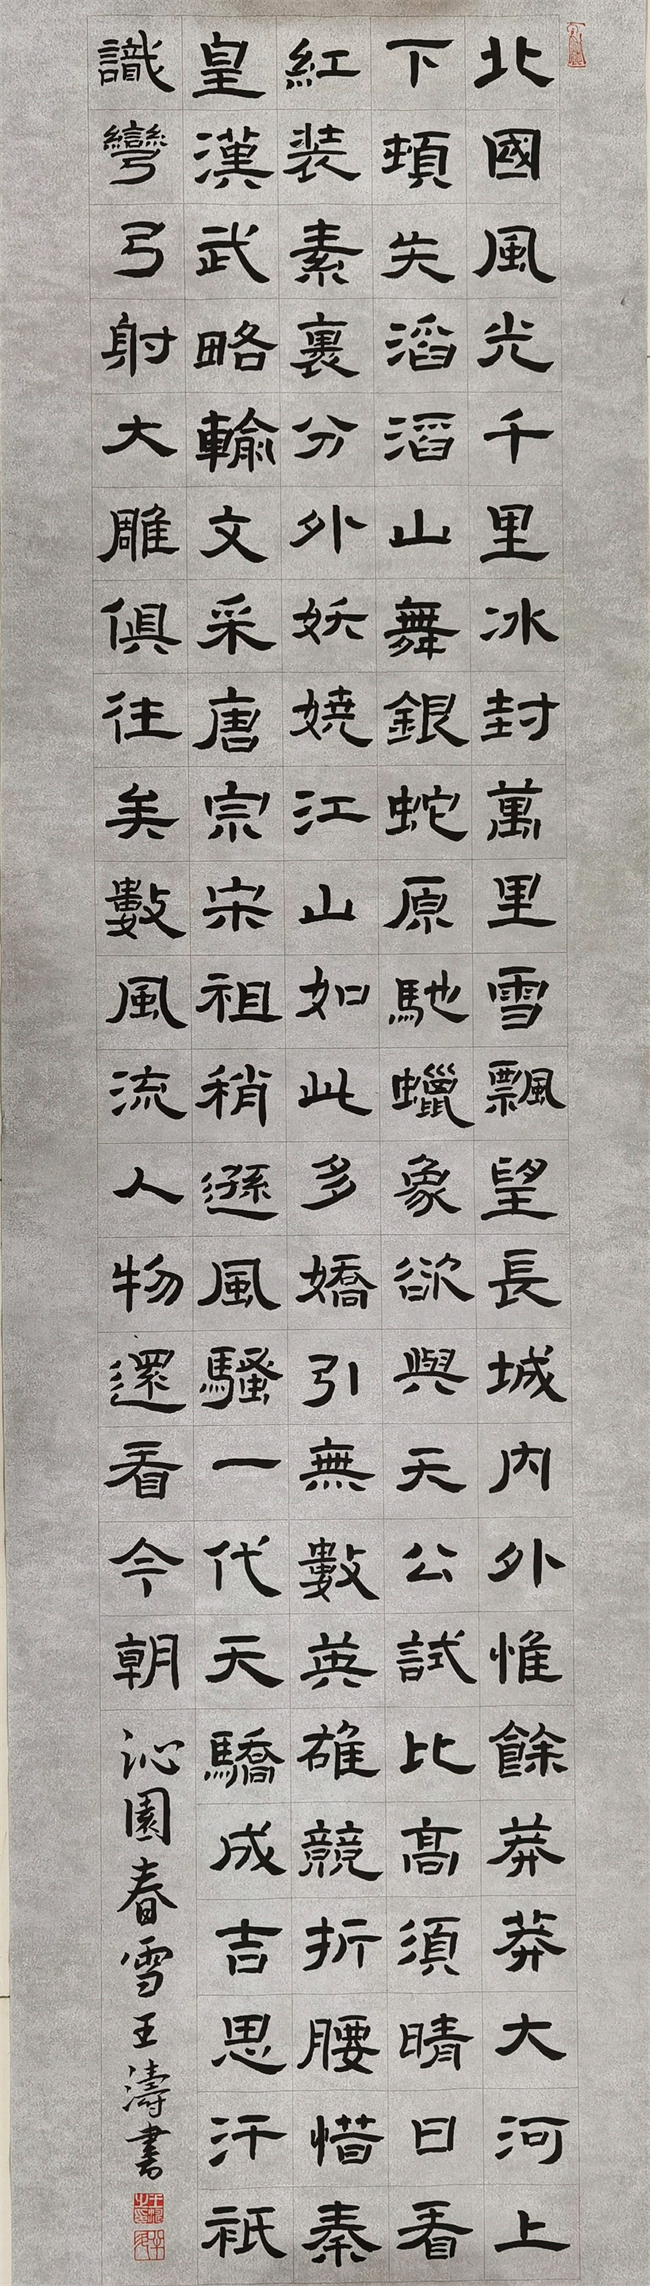 北國風光千里冰封萬里雪飄望長城内外惟餘莽莽大河上
下頓失滔滔山舞銀蛇原馳蠟象欲與天公試比髙須晴日看
紅装素裹分外妖嬈江山如此多嬌引無數英雄競折腰惜秦
皇漢武略輸文采唐宗宋祖稍遜風騷一代天驕成吉思汗祇
識彎弓射大雕俱往矣數風流人物還看今朝 沁園春雪王濤書